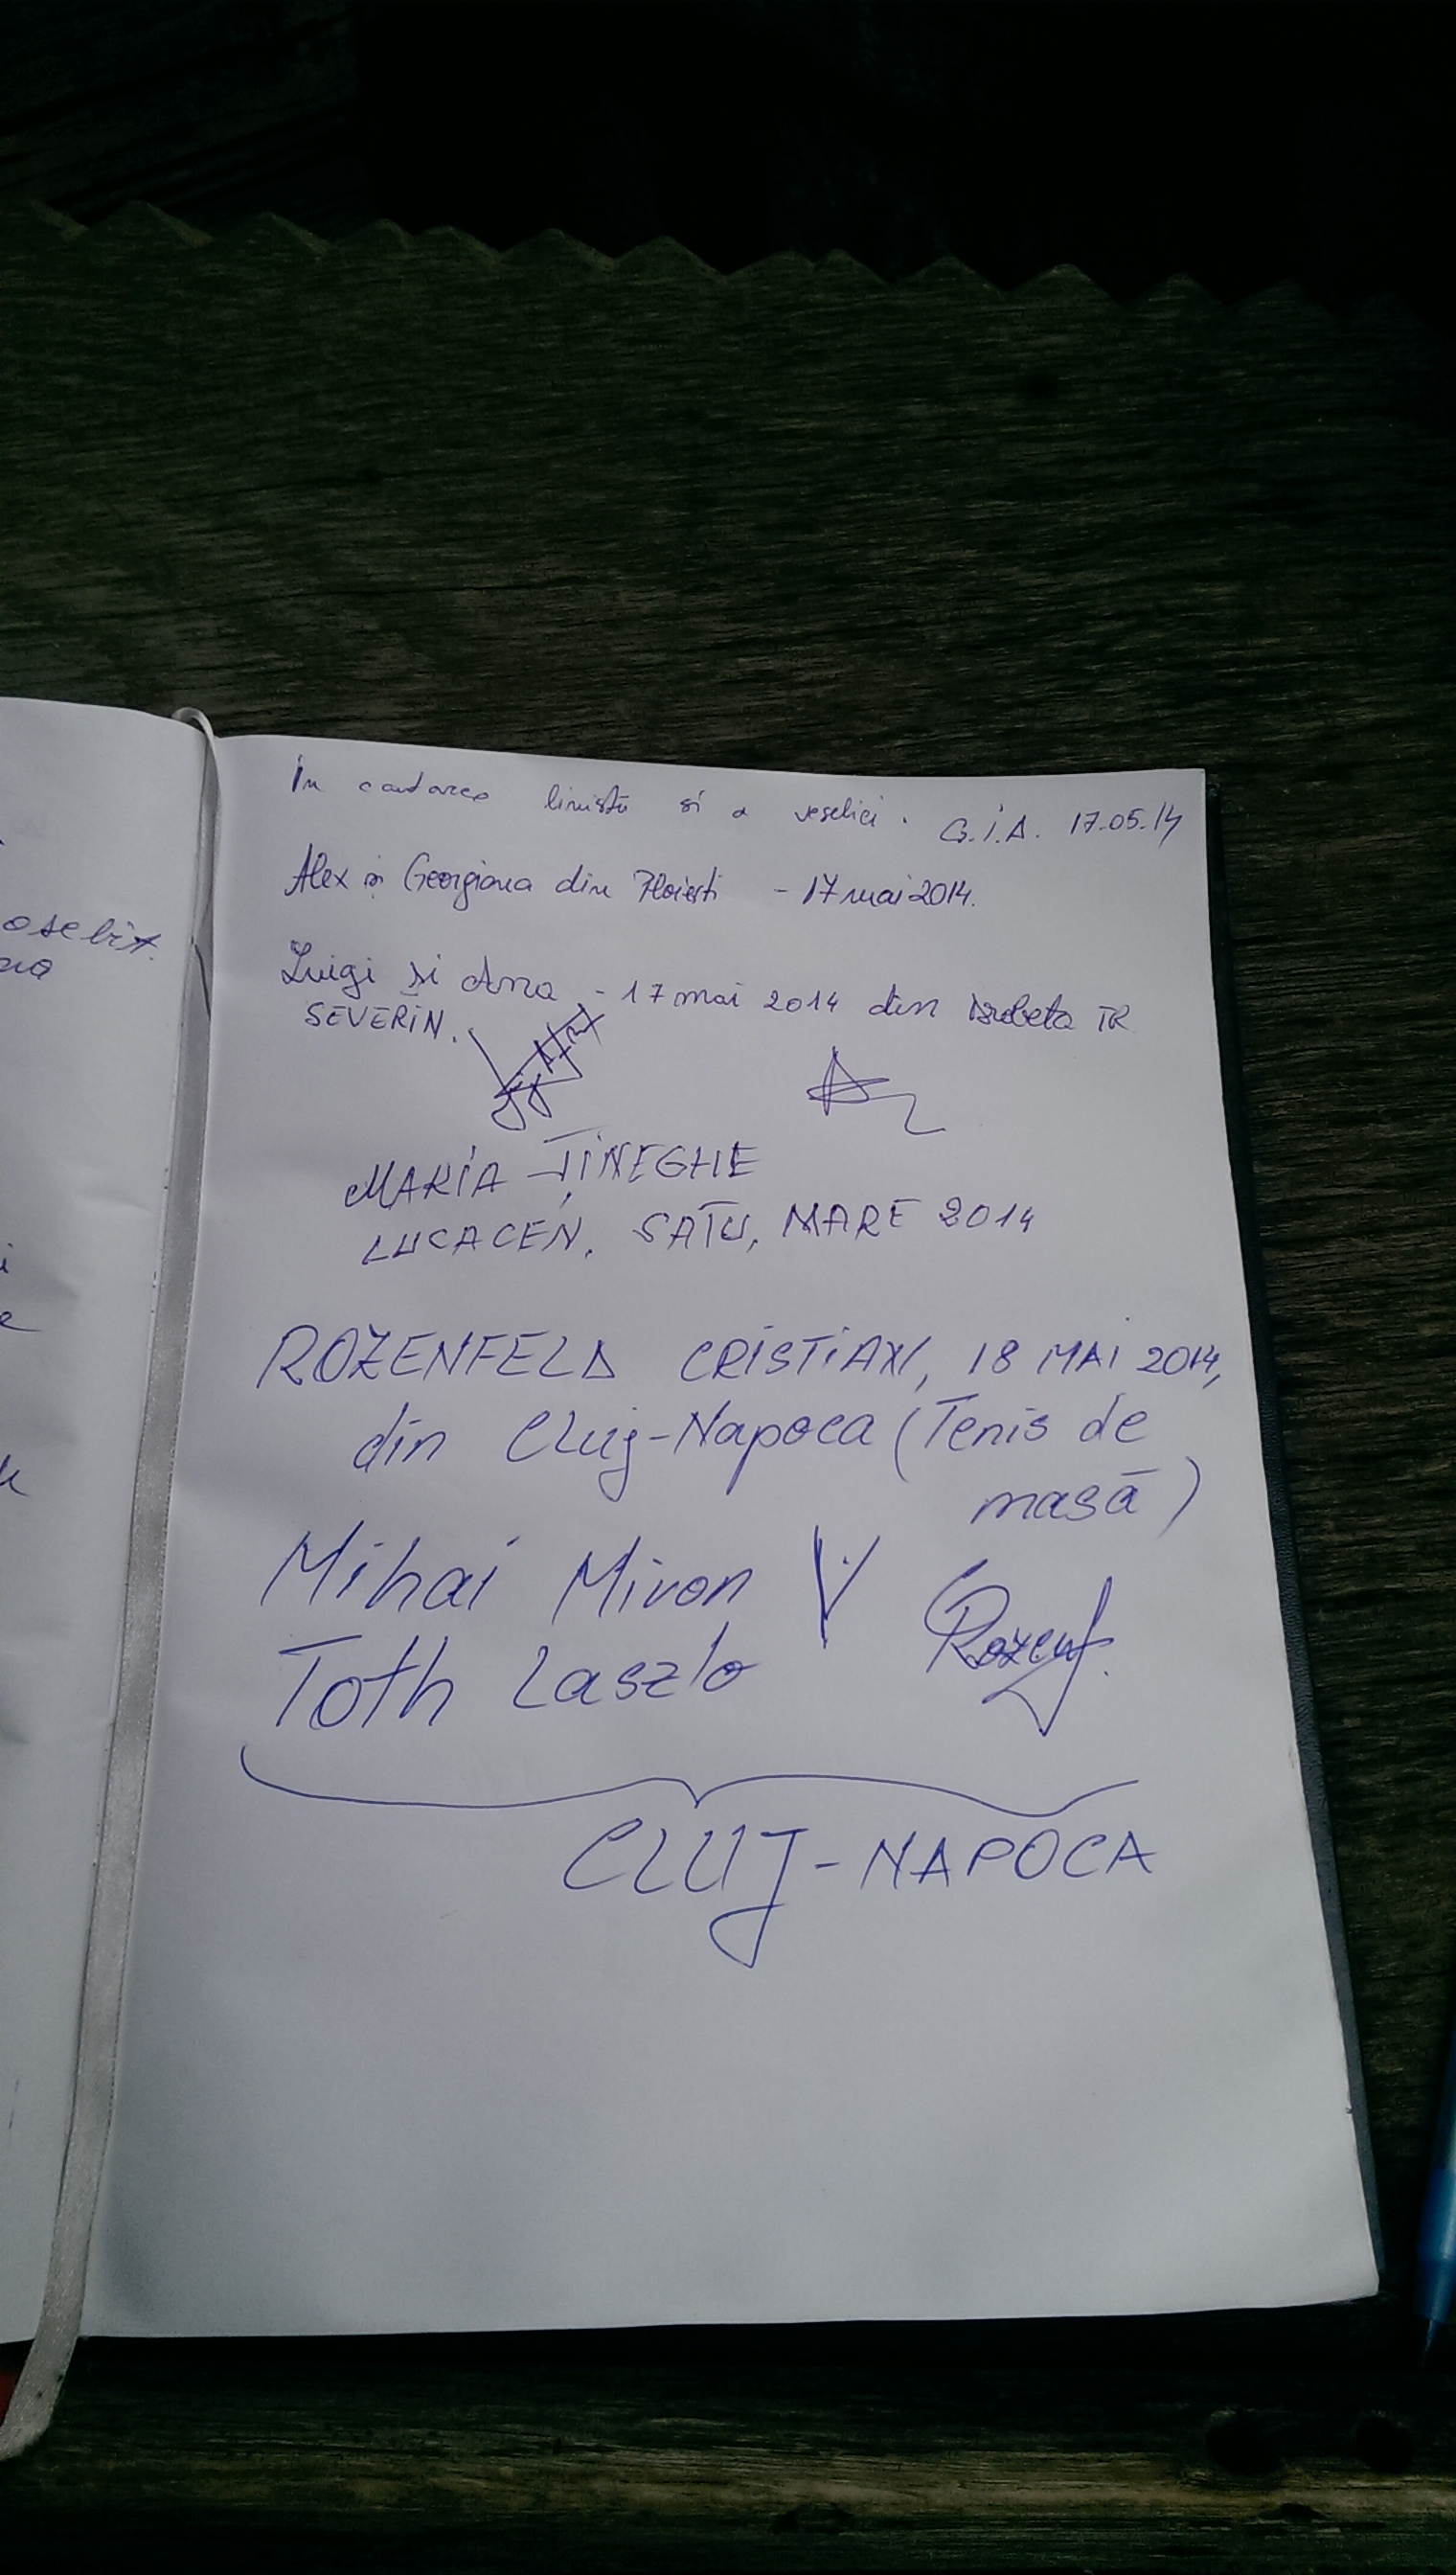 osebit.
In cautarea linistii si a veseliei. G.I.A. 17.05.14
Alex și Georgiana din Ploiesti - 17 mai 2014.
Luigi și Ana - 17 mai 2014 din Drobeta TR
SEVERIN.
MARIA ȚINEGHE
LUCACENI, SATU, MARE 2014
ROZENFELD CRISTIAN, 18 MAI 2014,
din Cluj-Napoca (Tenis de
masă)
Mihai Miron
Toth Laszlo
Rozenf.
CLUJ-NAPOCA